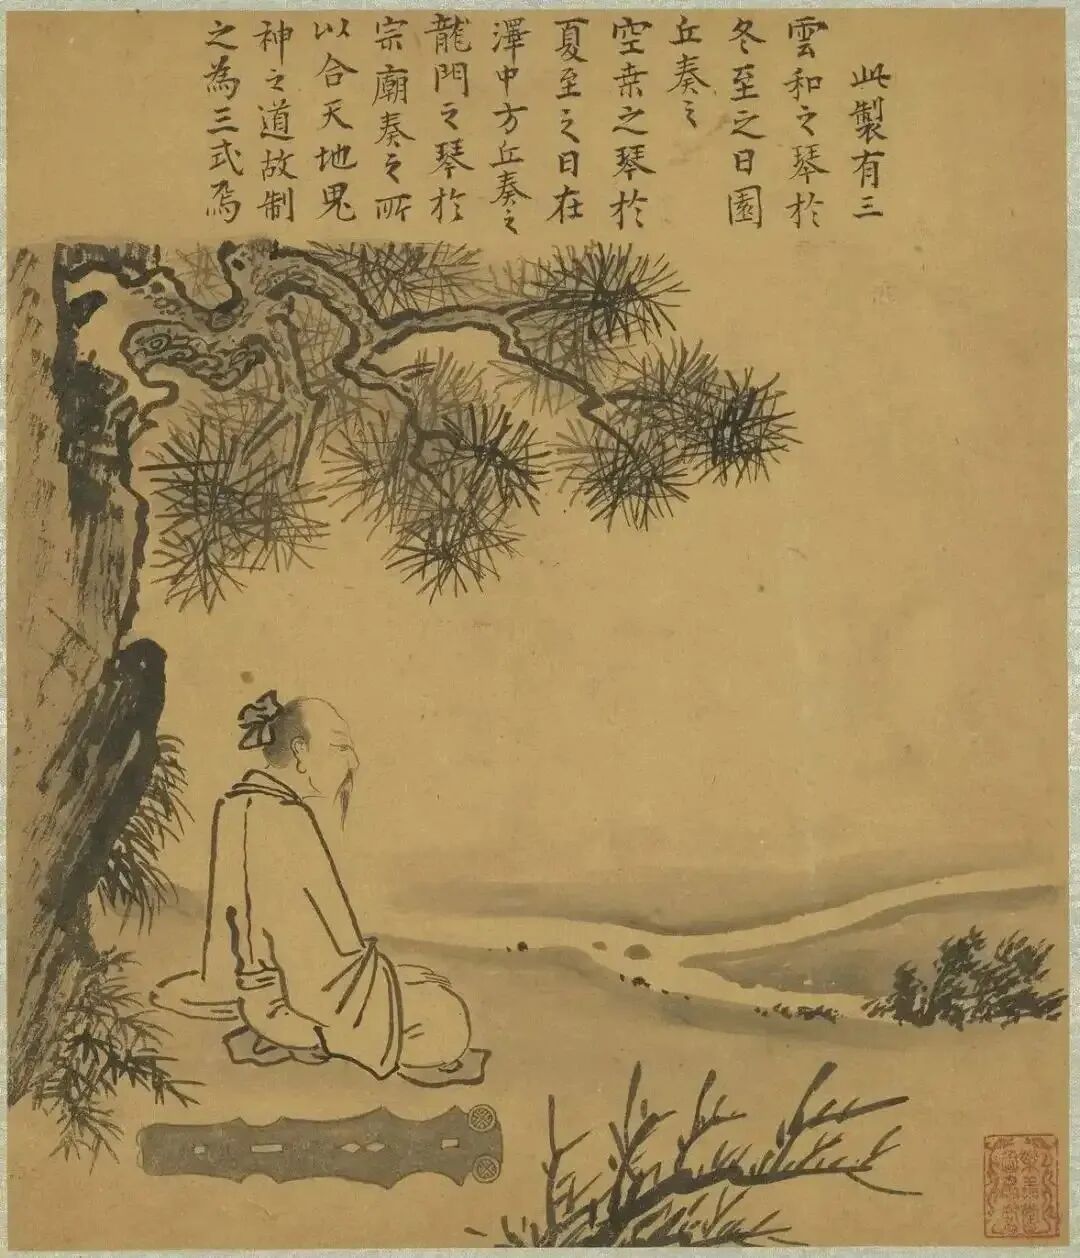 此製有三
雲和之琴於
冬至之日圜
丘奏之
空桒之琴於
夏至之日在
澤中方丘奏之
龍門之琴於
宗廟奏之所
以合天地鬼
神之道故制
之為三式焉